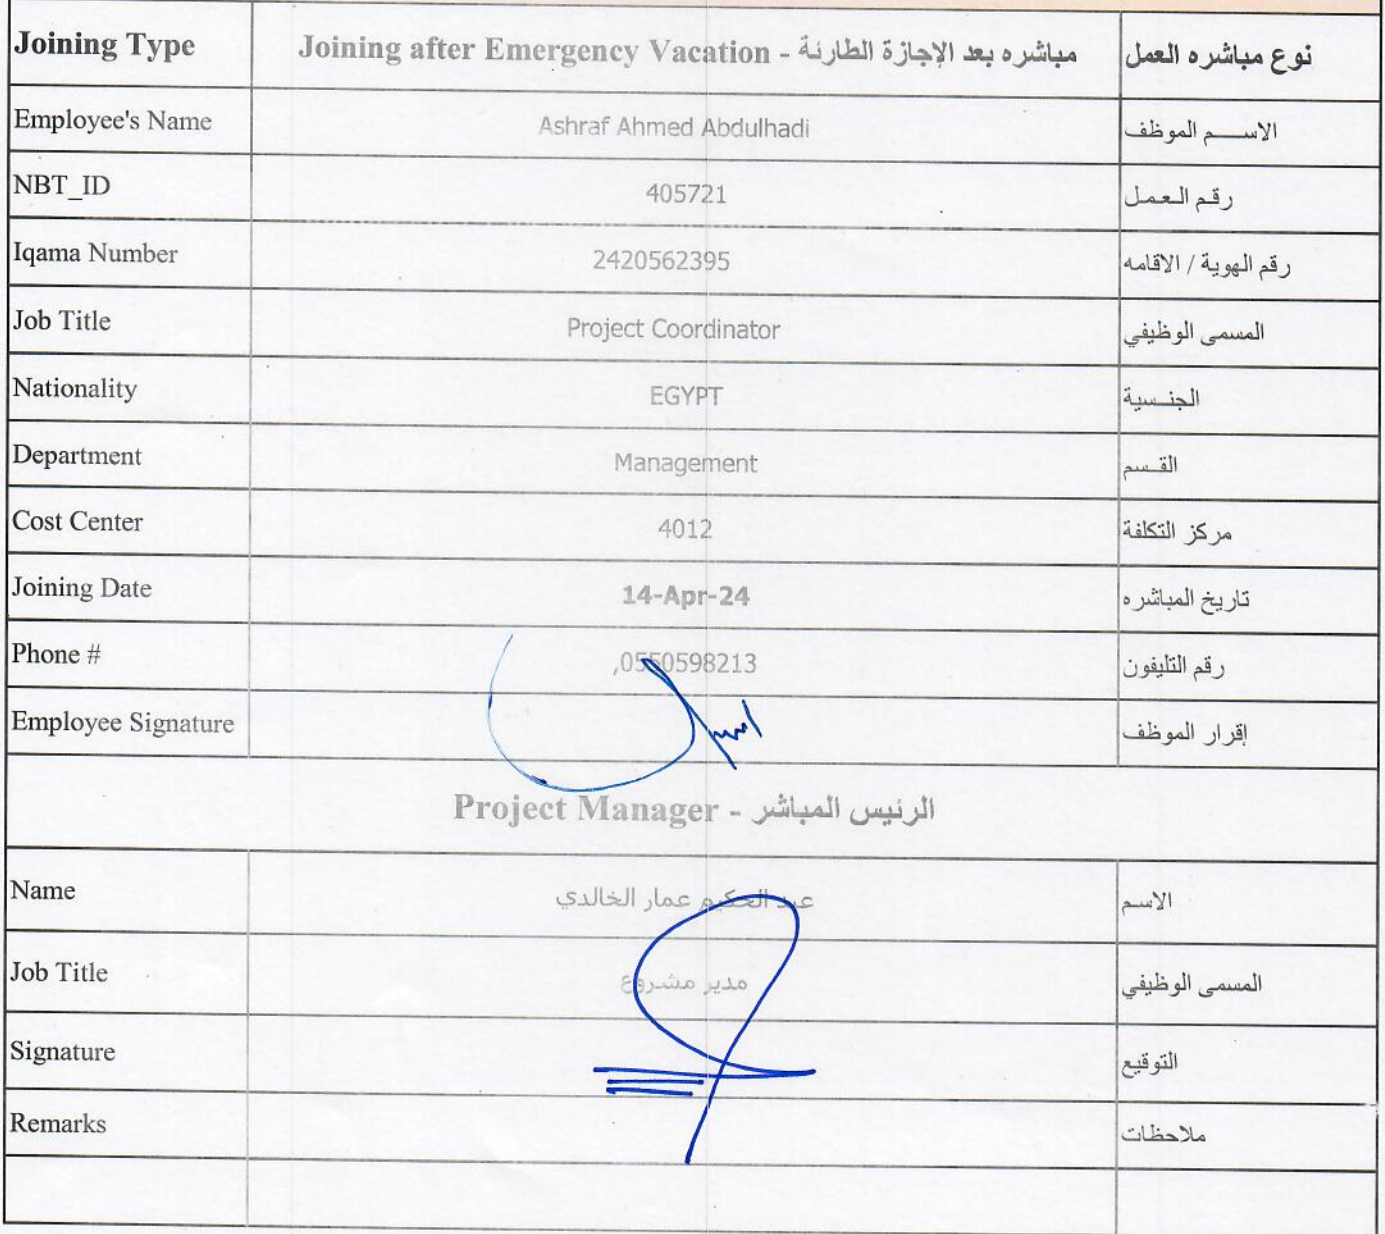 Joining Type Joining after Emergency Vacation - مباشره بعد الإجازة الطارئة نوع مباشره العمل
Employee's Name Ashraf Ahmed Abdulhadi الاســـم الموظف
NBT_ID 405721 رقم العمل
Iqama Number 2420562395 رقم الهوية / الاقامه
Job Title Project Coordinator المسمى الوظيفي
Nationality EGYPT الجنـسية
Department Management القـسم
Cost Center 4012 مركز التكلفة
Joining Date 14-Apr-24 تاريخ المباشره
Phone # ,0550598213 رقم التليفون
Employee Signature إقرار الموظف
Project Manager - الرئيس المباشر
Name عبد الحكيم عمار الخالدي الاسم
Job Title مدير مشروع المسمى الوظيفي
Signature التوقيع
Remarks ملاحظات